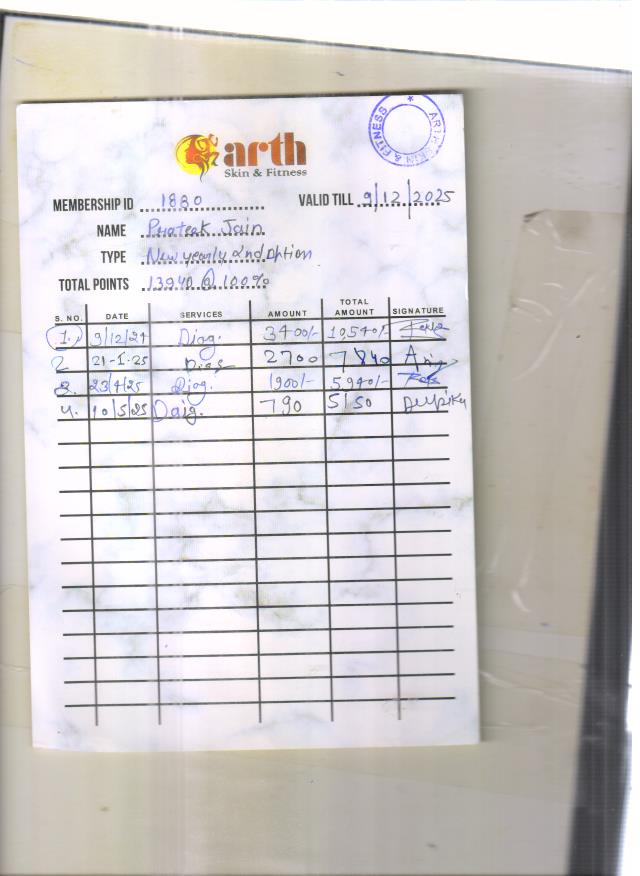 arth
Skin & Fitness
ARTH SKIN & FITNESS
MEMBERSHIP ID 1880 VALID TILL 9/12/2025
NAME Prateek Jain
TYPE New yearly 2nd Option
TOTAL POINTS 13940 @ 100%
S. NO. DATE SERVICES AMOUNT TOTAL AMOUNT SIGNATURE
1. 9/12/24 Diag. 3400/- 10,540/-
2 21-1-25 Diag 2700 7840
3. 23/4/25 Diag. 1900/- 5,940/-
4. 10/5/25 Daig. 790 5150 Deepika